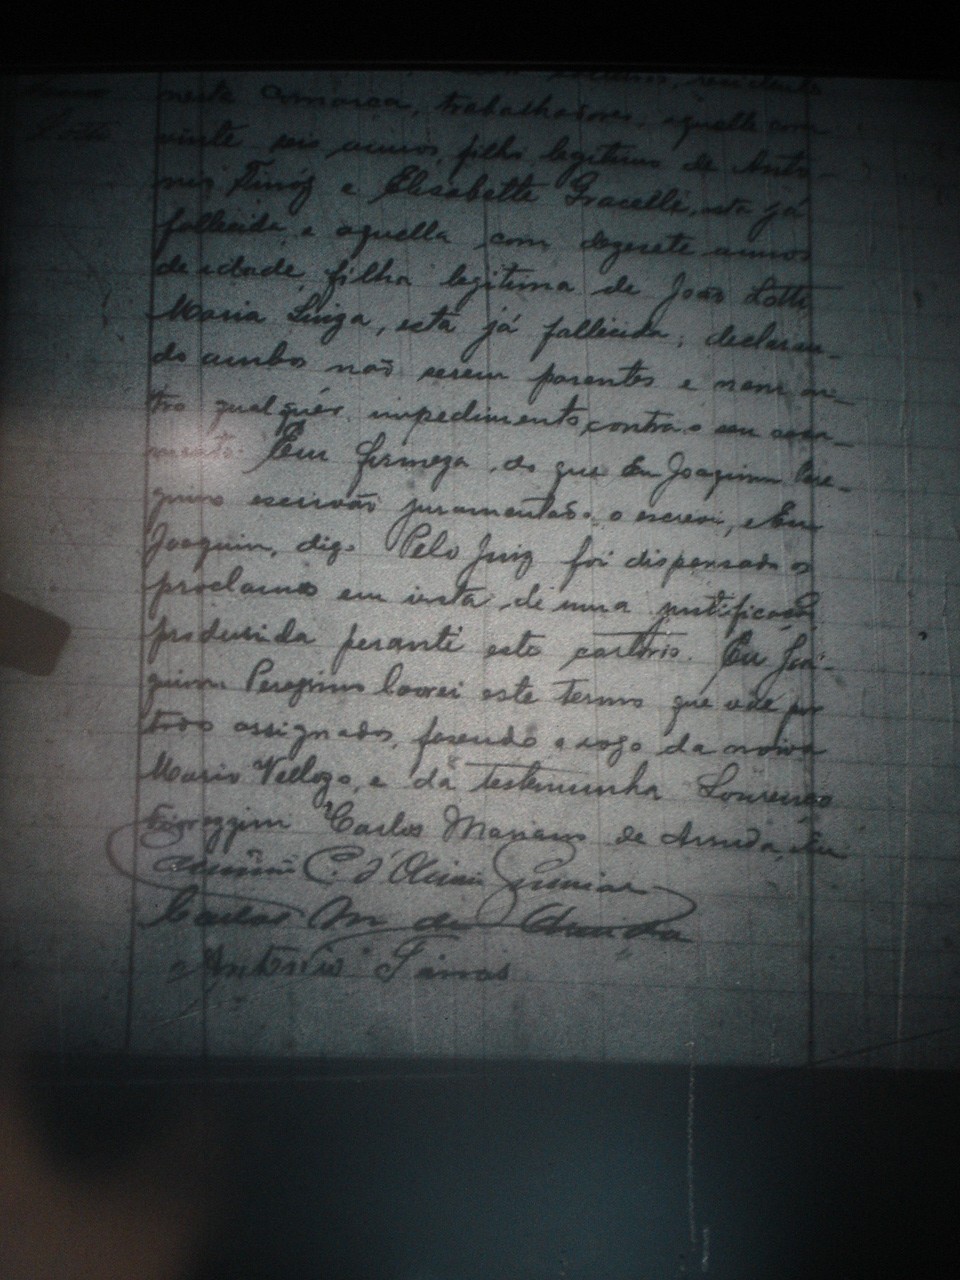 solteiros, residentes
nesta comarca, trabalhadores, aquelle com
vinte seis annos, filho legitimo de Anto-
nio Tinóz e Elisabetta Gracelli, esta já
fallecida, e aquella com dezesete annos
de idade, filha legitima de João Lotti
Maria Luiza, esta já fallecida, declaran-
do ambos não serem parentes e nem ou-
tro qualquér impedimento contra o seu casa-
mento. Em firmeza do que Eu Joaquim Pere-
grino escrivão juramentado o escrevi, e Eu
Joaquim, digo Pelo Juiz foi dispensado os
proclamos em vista de uma justificação
produsida perante este cartorio. Eu Joa-
quim Peregrino lavrei este termo que vae por
todos assignados, fasendo a rogo da noiva
Mario Vellozo, e da testemunha Lourenço
Carlos Mariano de Arruda, Eu
C. d'Oliveira Junior
Carlos M de Arruda
Antonio Tinos